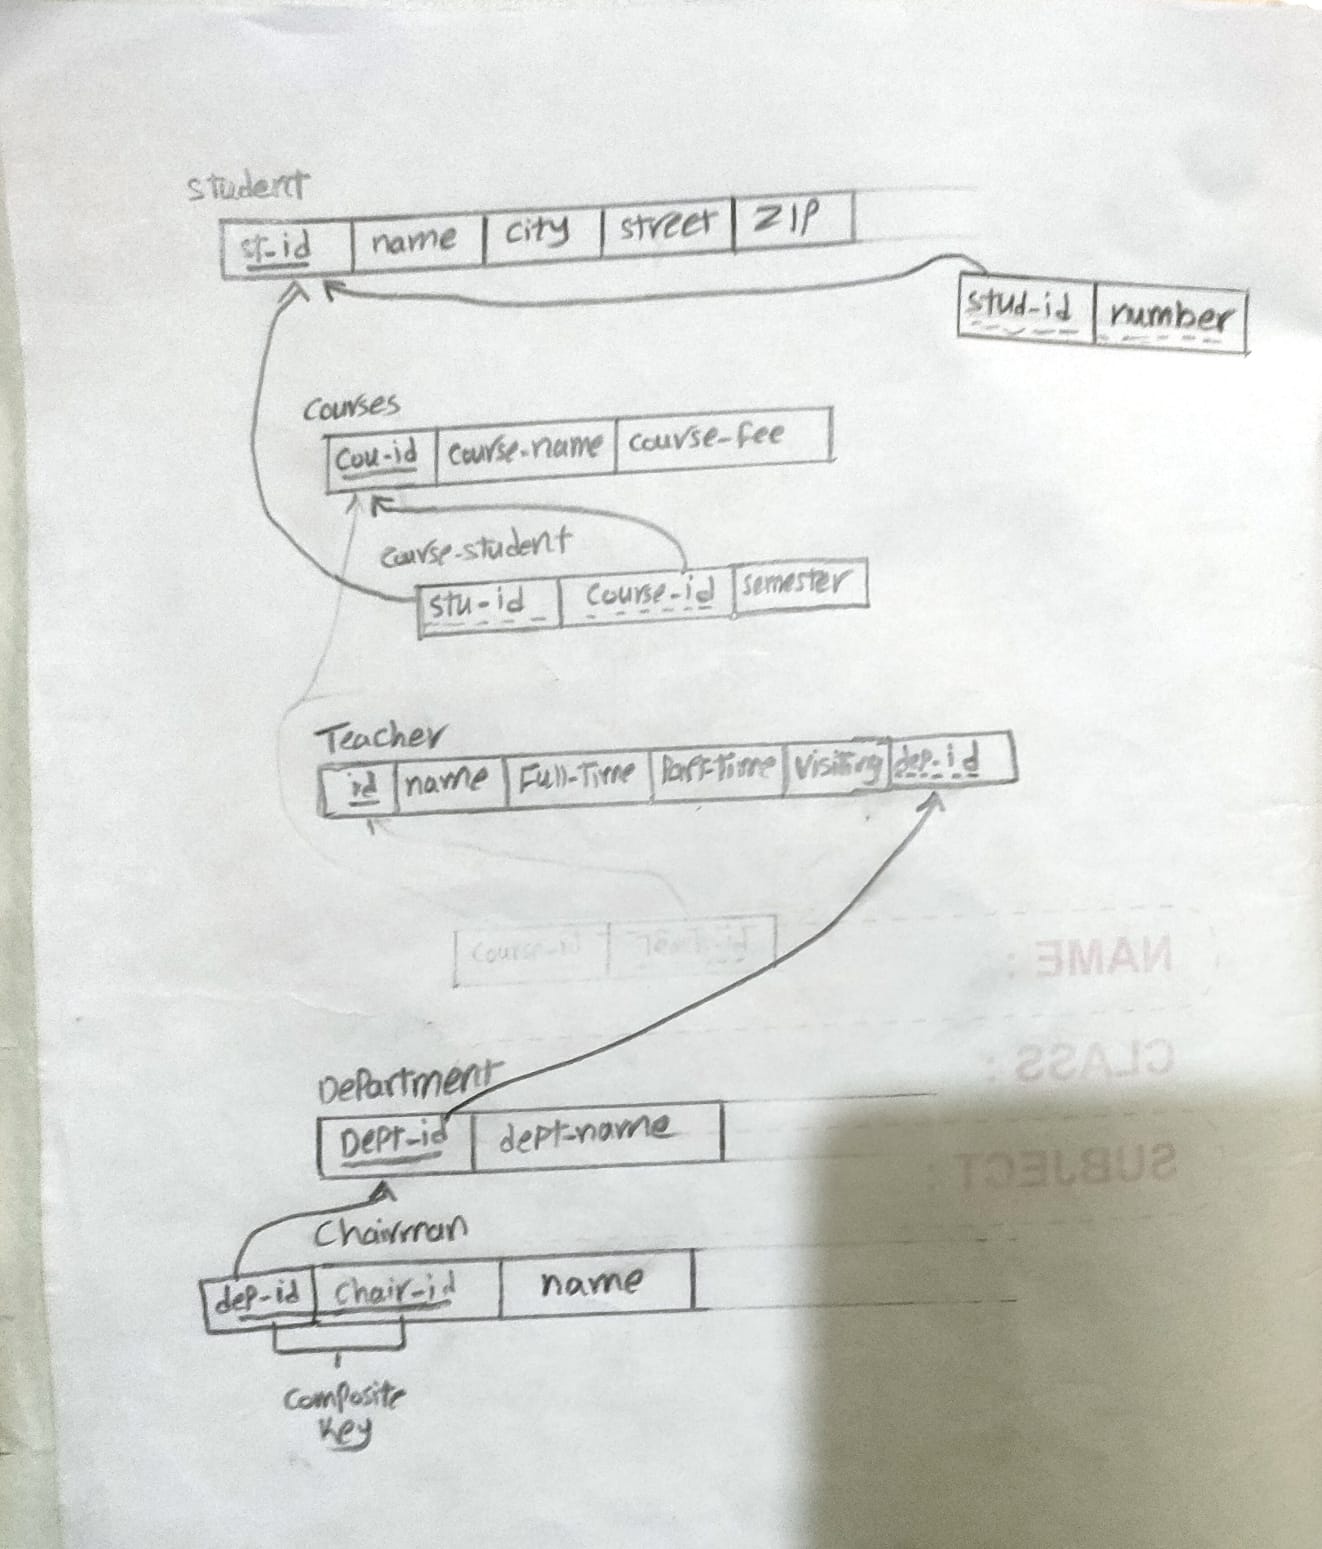 Student
st-id name city street ZIP
stud-id number
Courses
Cou-id course-name course-fee
Course-student
stu-id course-id semester
Teacher
id name Full-Time Part-Time Visiting dep-id
Course-id
NAME :
CLASS :
Department
Dept-id dept-name
SUBJECT :
Chairman
dep-id Chair-id name
Composite
Key